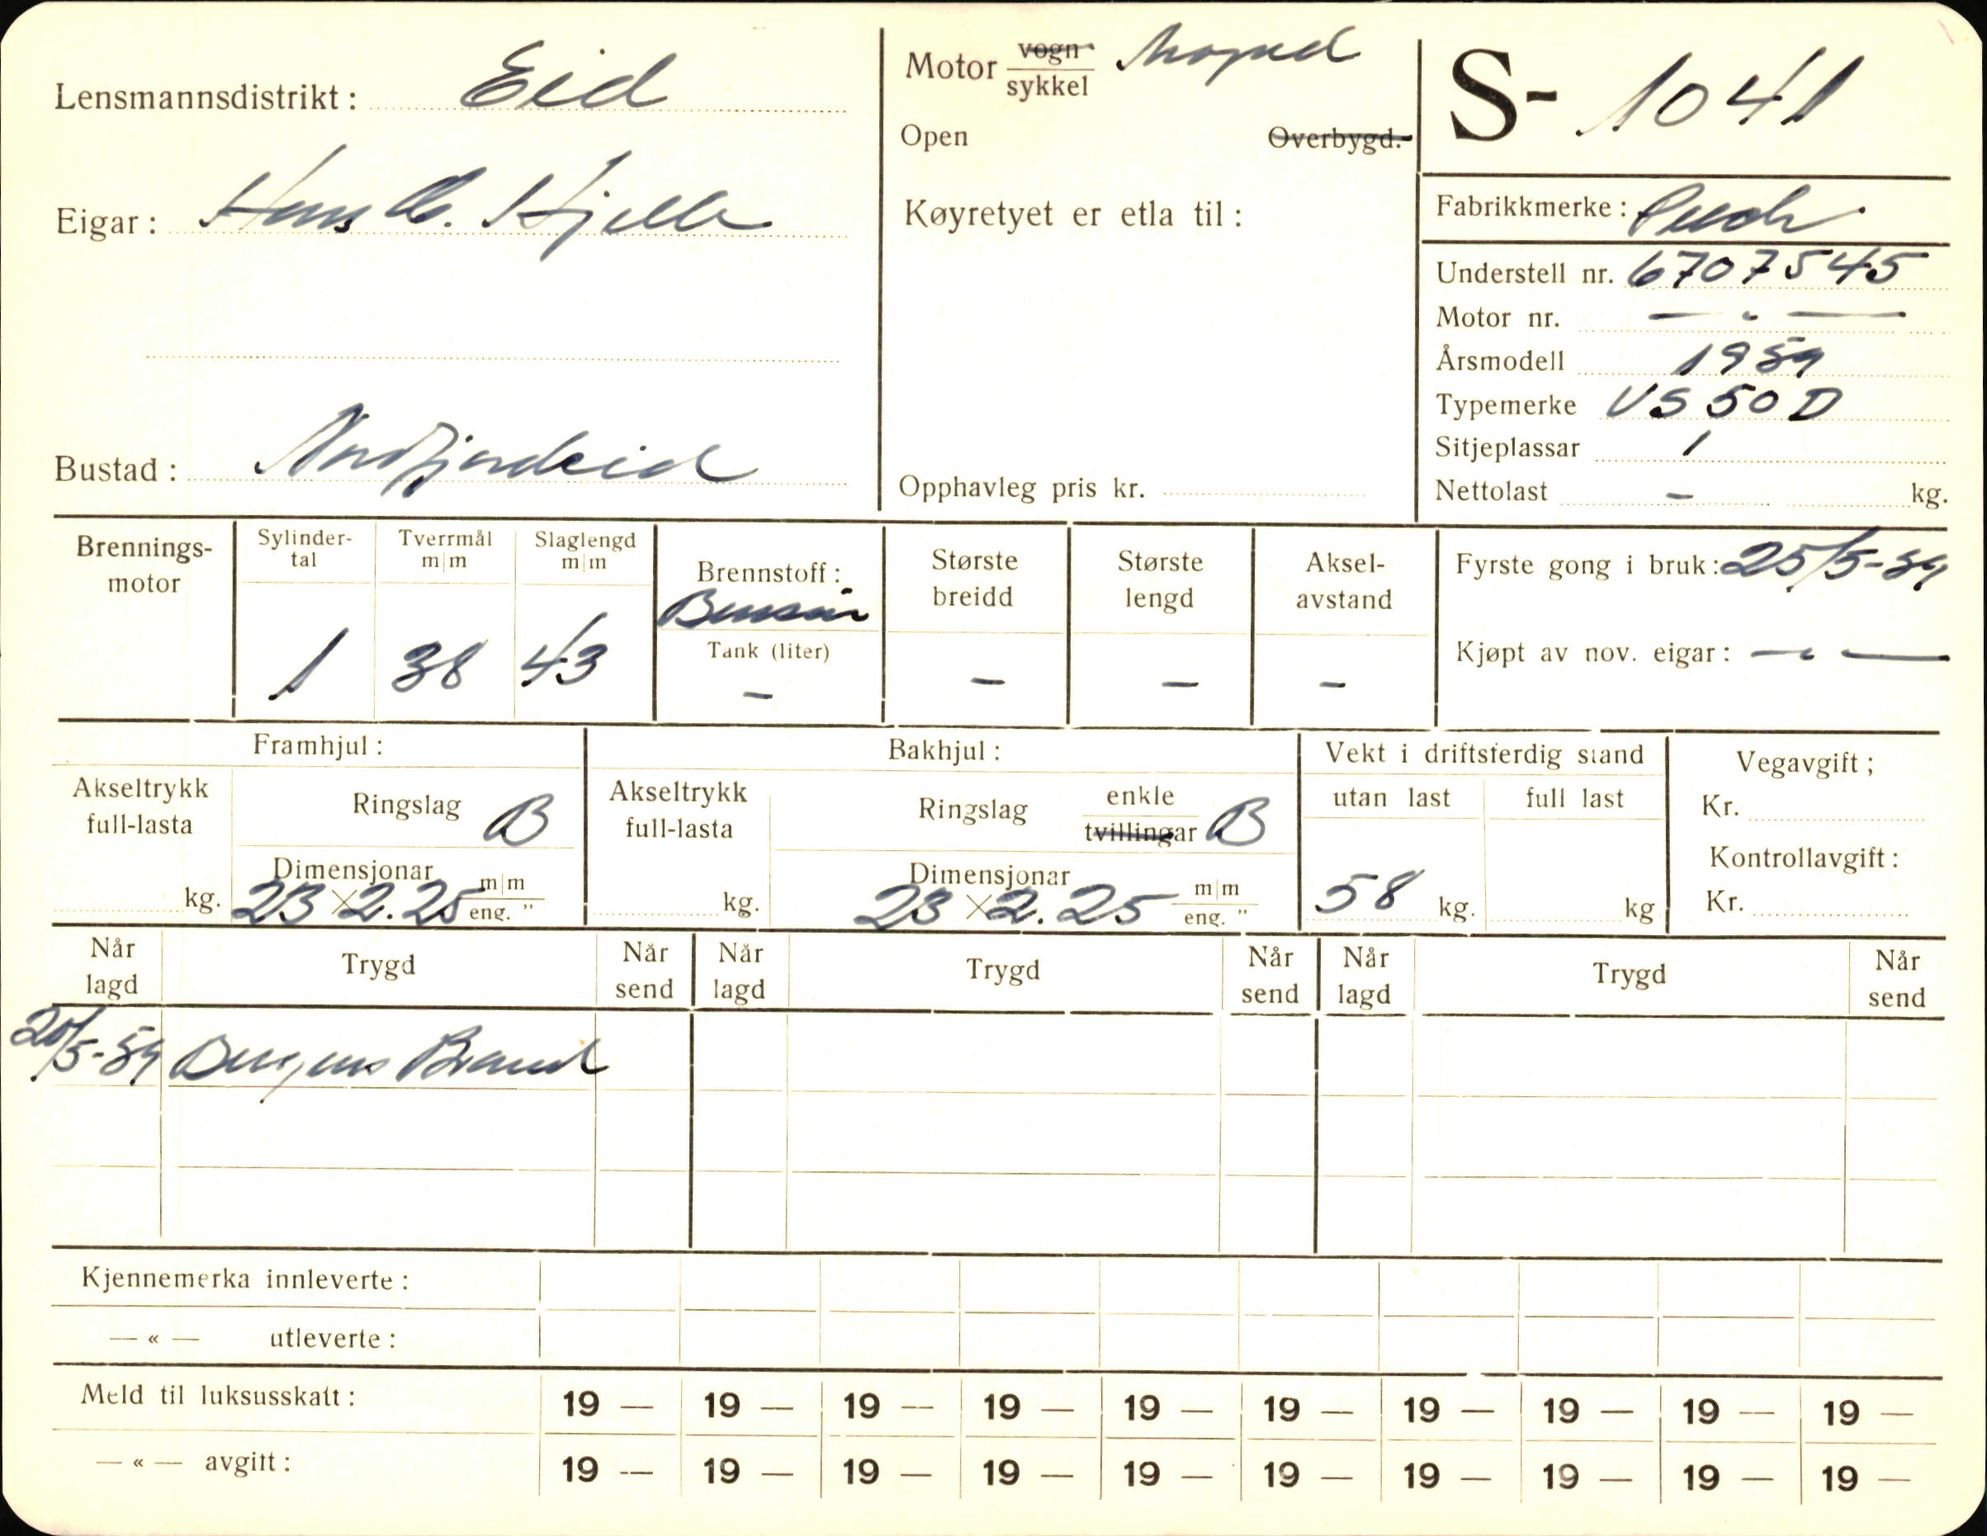 Lensmannsdistrikt: Eid
Eigar: Hans Hjelle
Bustad: Nordfjordeid
Motor vogn sykkel Moped
Open Overbygd.
Køyretyet er etla til:
Opphavleg pris kr.
S- 1041
Fabrikkmerke: Puch
Understell nr. 6707545
Motor nr. — " —
Årsmodell 1959
Typemerke VS 50 D
Sitjeplassar 1
Nettolast - kg.
Brennings-
motor
Sylinder-
tal
1
Tverrmål
m/m
38
Slaglengd
m/m
43
Brennstoff:
Bensin
Tank (liter)
-
Største
breidd
-
Største
lengd
-
Aksel-
avstand
-
Fyrste gong i bruk: 25/5-59
Kjøpt av nov. eigar: — " —
Framhjul:
Akseltrykk
full-lasta
kg.
Ringslag B
Dimensjonar
23 × 2.25 m/m eng. "
Bakhjul:
Akseltrykk
full-lasta
kg.
Ringslag enkle tvillingar B
Dimensjonar
23 × 2.25 m/m eng. "
Vekt i driftsferdig stand
utan last full last
58 kg. kg
Vegavgift;
Kr.
Kontrollavgift:
Kr.
Når lagd Trygd Når send Når lagd Trygd Når send Når lagd Trygd Når send
20/5-59 Brand
Kjennemerka innleverte:
— « — utleverte:
Meld til luksusskatt: 19 — 19 — 19 — 19 — 19 — 19 — 19 — 19 — 19 — 19 —
— « — avgift: 19 — 19 — 19 — 19 — 19 — 19 — 19 — 19 — 19 — 19 —